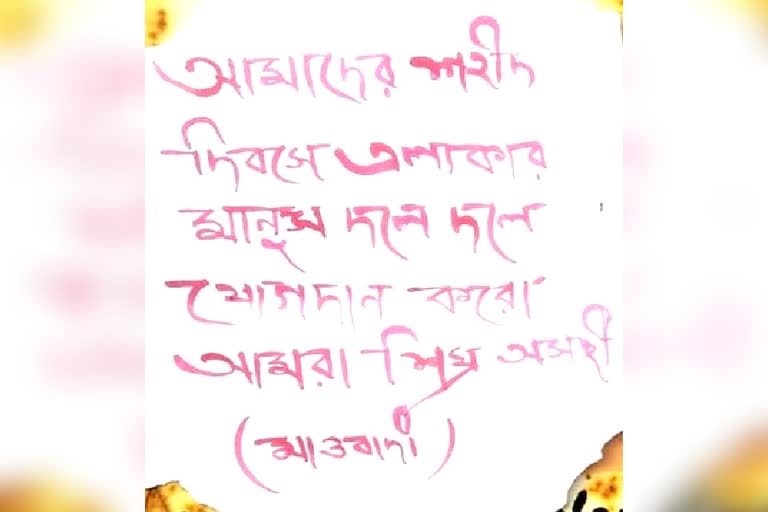 আমাদের শহীদ
দিবসে এলাকার
মানুষ দলে দলে
যোগদান করো
আমরা শিঘ্র আসছী
(মাওবাদী)